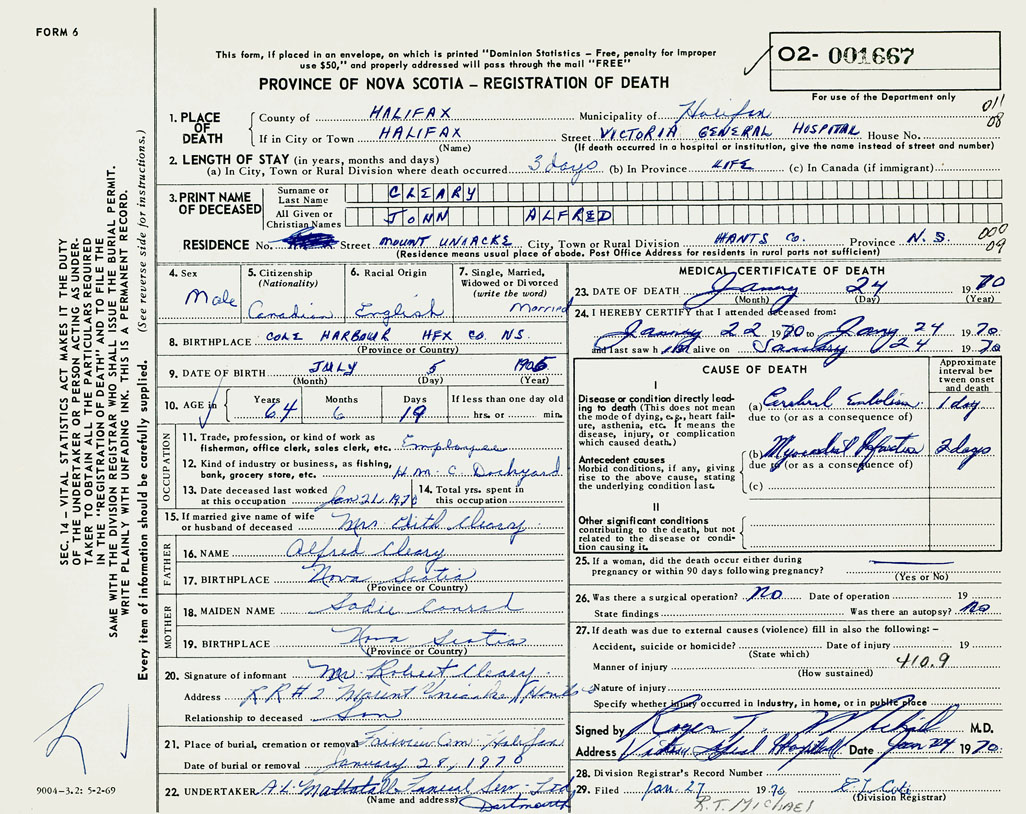 FORM 6
This form, if placed in an envelope, on which is printed "Dominion Statistics – Free, penalty for improper
use $50," and properly addressed will pass through the mail "FREE"
O2- 001667
PROVINCE OF NOVA SCOTIA – REGISTRATION OF DEATH
For use of the Department only
011
08
1. PLACE OF DEATH
County of HALIFAX Municipality of Halifax
If in City or Town HALIFAX Street VICTORIA GENERAL HOSPITAL House No.
(Name) (If death occurred in a hospital or institution, give the name instead of street and number)
2. LENGTH OF STAY (in years, months and days)
(a) In City, Town or Rural Division where death occurred 3 days (b) In Province LIFE (c) In Canada (if immigrant)
3. PRINT NAME OF DECEASED
Surname or Last Name CLEARY
All Given or Christian Names JOHN ALFRED
RESIDENCE No. Street MOUNT UNIACKE City, Town or Rural Division HANTS Co. Province N.S.
000
09
(Residence means usual place of abode. Post Office Address for residents in rural parts not sufficient)
4. Sex
Male
5. Citizenship
(Nationality)
Canadian
6. Racial Origin
English
7. Single, Married,
Widowed or Divorced
(write the word)
Married
8. BIRTHPLACE COLE HARBOUR HFX CO. NS.
(Province or Country)
9. DATE OF BIRTH JULY 5 1905
(Month) (Day) (Year)
10. AGE in
Years Months Days If less than one day old
64 6 19 hrs. or min.
OCCUPATION
11. Trade, profession, or kind of work as
fisherman, office clerk, sales clerk, etc. Employee
12. Kind of industry or business, as fishing,
bank, grocery store, etc. H.M.C. Dockyard
13. Date deceased last worked
at this occupation Jan 21, 1970
14. Total yrs. spent in
this occupation
15. If married give name of wife
or husband of deceased Mrs Edith Cleary
FATHER
16. NAME Alfred Cleary
17. BIRTHPLACE Nova Scotia
(Province or Country)
MOTHER
18. MAIDEN NAME Sadie Conrad
19. BIRTHPLACE Nova Scotia
(Province or Country)
20. Signature of informant Mr. Robert Cleary
Address R.R #2 Mount Uniacke Hants
Relationship to deceased Son
21. Place of burial, cremation or removal Fairview Cem. Halifax
Date of burial or removal January 28, 1970
22. UNDERTAKER A.L. Mattatall Funeral Serv. Ltd
(Name and address) Dartmouth
MEDICAL CERTIFICATE OF DEATH
23. DATE OF DEATH 24 1970
(Month) (Day) (Year)
24. I HEREBY CERTIFY that I attended deceased from:
22 1970 to 24 1970
and last saw him alive on January 24 1970
CAUSE OF DEATH
Approximate interval between onset and death
I
Disease or condition directly leading to death (This does not
mean the mode of dying, e.g., heart failure, asthenia, etc. It means the
disease, injury, or complication
which caused death)
(a) Cerebral Embolism 1 day
due to (or as a consequence of)
Antecedent causes
Morbid conditions, if any, giving
rise to the above cause, stating
the underlying condition last.
(b) Myocardial Infarction 2 days
due to (or as a consequence of)
(c)
II
Other significant conditions
contributing to the death, but not
related to the disease or condition causing it.
25. If a woman, did the death occur either during
pregnancy or within 90 days following pregnancy?
(Yes or No)
26. Was there a surgical operation? No Date of operation 19
State findings Was there an autopsy? No
27. If death was due to external causes (violence) fill in also the following: –
Accident, suicide or homicide? Date of injury 19
(State which)
Manner of injury 410.9
(How sustained)
Nature of injury
Specify whether injury occurred in Industry, in home, or in public place
Signed by Roger T. Michael M.D.
Address Hospital Date Jan 24 1970
28. Division Registrar's Record Number
29. Filed Jan. 27 1970
(Division Registrar)
R.T. MICHAEL
SEC. 14 – VITAL STATISTICS ACT MAKES IT THE DUTY
OF THE UNDERTAKER OR PERSON ACTING AS UNDERTAKER TO OBTAIN ALL THE PARTICULARS REQUIRED
IN THE "REGISTRATION OF DEATH" AND TO FILE THE
SAME WITH THE DIVISION REGISTRAR WHO SHALL ISSUE THE BURIAL PERMIT.
WRITE PLAINLY WITH UNFADING INK. THIS IS A PERMANENT RECORD.
Every item of information should be carefully supplied. (See reverse side for instructions.)
9004-3.2: 5-2-69